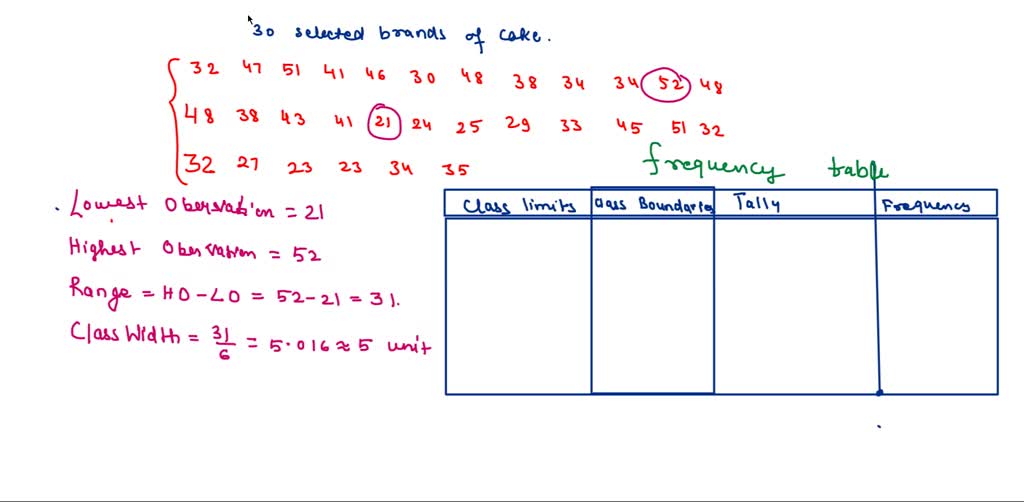 30 selected brands of cake.
32 47 51 41 46 30 48 38 34 34 52 48
48 38 43 41 21 24 25 29 33 45 51 32
32 27 23 23 34 35
frequency table
Class limits Class Boundaries Tally Frequency
Lowest Obersvation = 21
Highest Obersvation = 52
Range = HO-LO = 52-21 = 31.
Class Width = 31/6 = 5.016 ≈ 5 unit